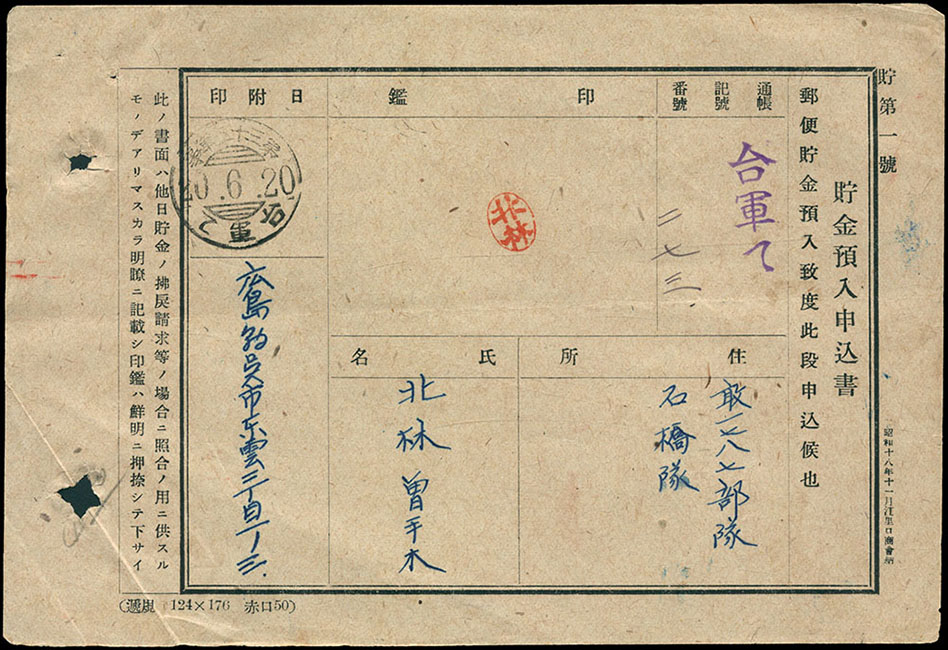 貯第一號
昭和十八年十一月江里口商會納
貯金預入申込書
郵便貯金預入致度此段申込候也
通帳
記號
番號
台軍て
二七三
印鑑
北林
日附印
20.6.20
台軍
住所
敢一七八七部隊
石橋隊
氏名
北林
広島
呉市東雲三丁目一ノ三
此ノ書面ハ他日貯金ノ拂戾請求等ノ場合ニ照合ノ用ニ供スル
モノデアリマスカラ明瞭ニ記載シ印鑑ハ鮮明ニ押捺シテ下サイ
124×176 赤口50)